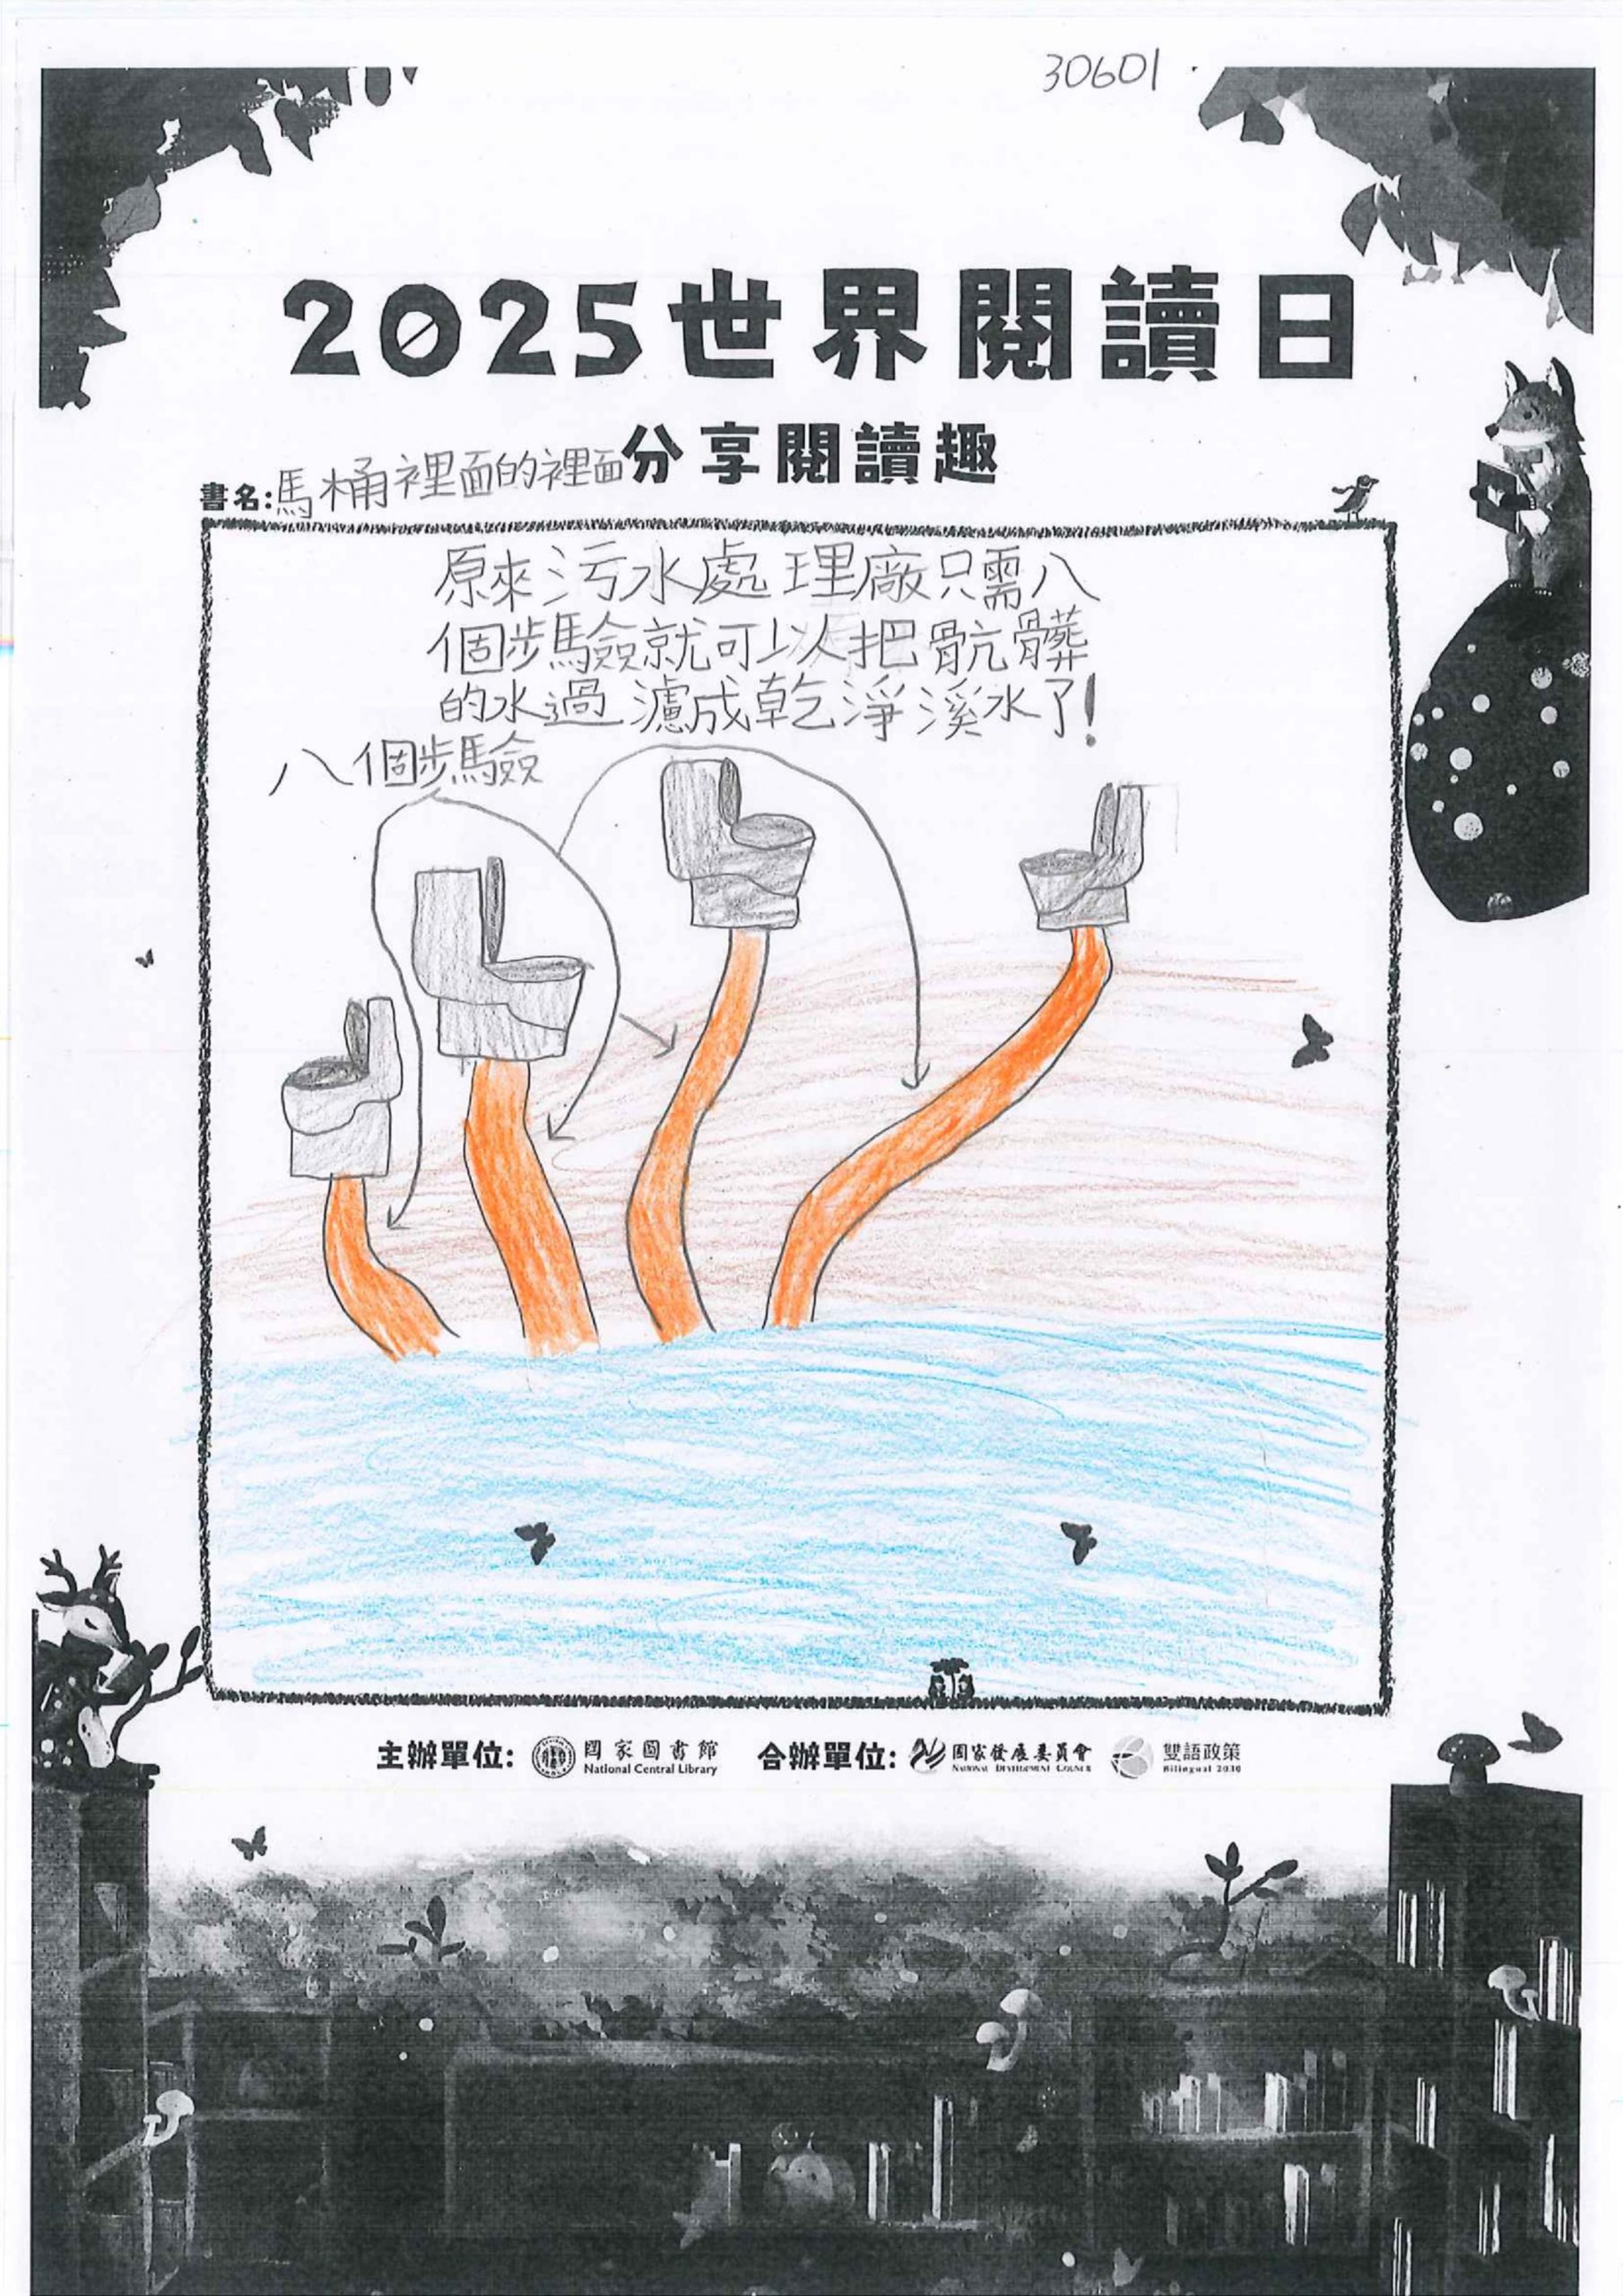 30601
2025世界閱讀日
分享閱讀趣
書名:馬桶裡面的裡面
原來污水處理廠只需八
個步驗就可以把骯髒
的水過濾成乾淨溪水了!
八個步驗
主辦單位: 國家圖書館 National Central Library 合辦單位: 國家發展委員會 NATIONAL DEVELOPMENT COUNCIL 雙語政策 Bilingual 2030